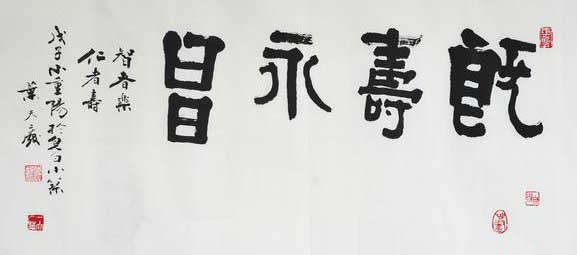 既壽永昌
智者樂
仁者壽
戊子小重陽於小築
葉天